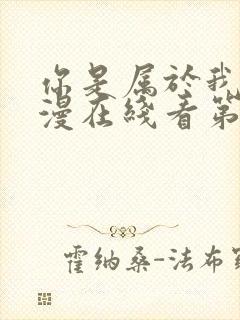 你是属於我
漫在线看第
霍纳桑-法布